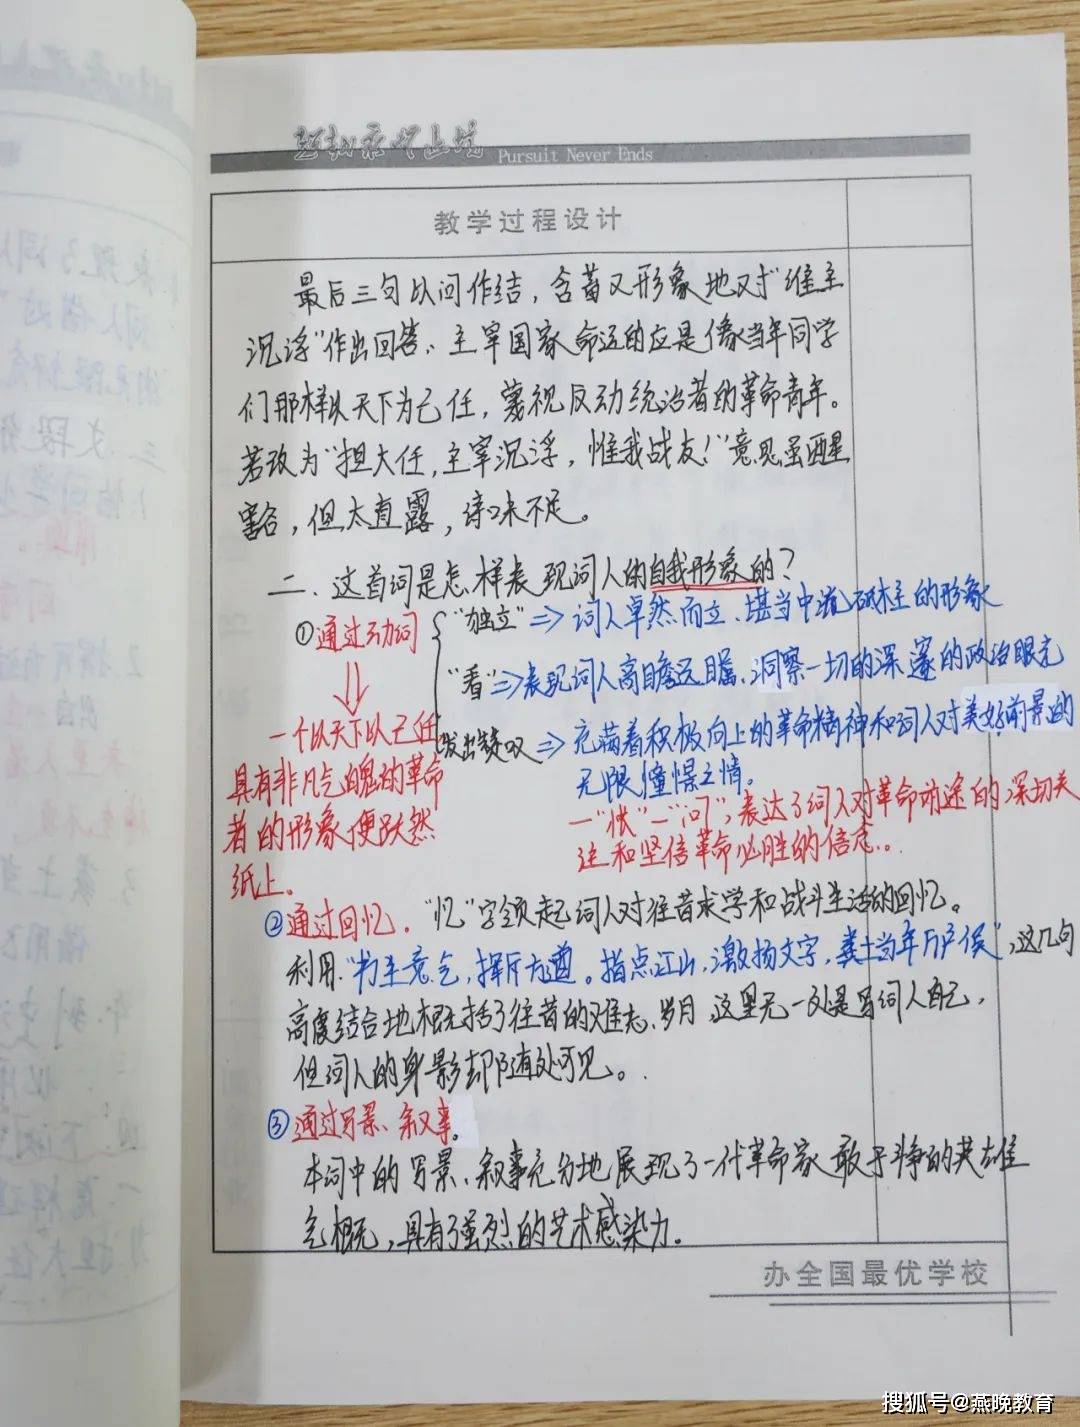 Pursuit Never Ends
教学过程设计
最后三句以问作结，含蓄又形象地对“谁主
沉浮”作出回答：主宰国家命运的应是像当年同学
们那样以天下为己任，蔑视反动统治者的革命青年。
若改为“担大任，主宰沉浮，惟我战友！”意思虽明显
豁，但太直露，诗味不足。
二、这首词是怎样表现词人的自我形象的？
①通过动词
“独立”=>词人卓然而立、堪当中流砥柱的形象
“看”=>表现词人高瞻远瞩、洞察一切的深邃的政治眼光
发出疑叹=>充满着积极向上的革命精神和词人对美好前景的
无限憧憬之情。
一“怅”一“问”，表达了词人对革命前途的深切关
注和坚信革命必胜的信念。
一个以天下以己任
具有非凡气魄的革命
者的形象便跃然
纸上。
②通过回忆。“忆”字领起词人对往昔求学和战斗生活的回忆。
利用“书生意气，挥斥方遒。指点江山，激扬文字，粪土当年万户侯”，这几句
高度结合地概括了往昔的难忘岁月，这里无一处是写词人自己，
但词人的身影却随处可见。
③通过写景、叙事。
本词中的写景、叙事充分地展现了一代革命家敢于斗争的英雄
气概，具有强烈的艺术感染力。
办全国最优学校
搜狐号@燕晚教育